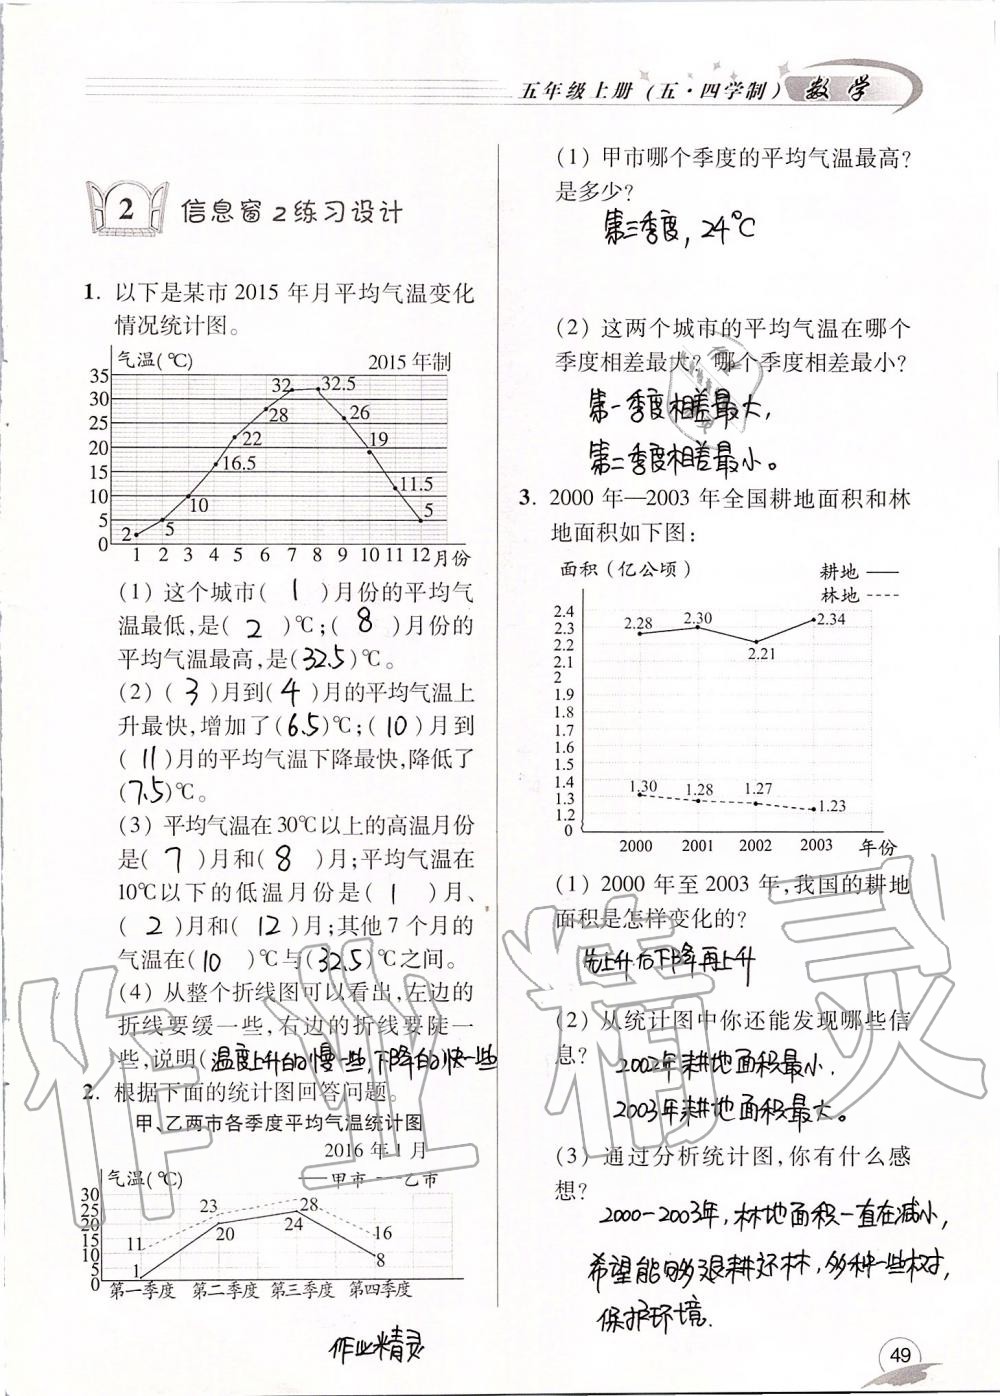 五年级上册(五·四学制) 数学
2 信息窗2练习设计
1. 以下是某市2015年月平均气温变化
情况统计图。
气温(℃) 2015年制
35
30
25
20
15
10
5
0
2 5 10 16.5 22 28 32 32.5 26 19 11.5 5
1 2 3 4 5 6 7 8 9 10 11 12 月份
(1) 这个城市( 1 )月份的平均气
温最低,是( 2 )℃;( 8 )月份的
平均气温最高,是(32.5)℃。
(2) ( 3 )月到( 4 )月的平均气温上
升最快,增加了(6.5)℃;(10)月到
(11)月的平均气温下降最快,降低了
(7.5)℃。
(3) 平均气温在30℃以上的高温月份
是( 7 )月和( 8 )月;平均气温在
10℃以下的低温月份是( 1 )月、
( 2 )月和( 12 )月;其他7个月的
气温在(10 )℃与(32.5)℃之间。
(4) 从整个折线图可以看出,左边的
折线要缓一些,右边的折线要陡一
些,说明(温度上升的慢一些,下降的快一些
2. 根据下面的统计图回答问题。
甲、乙两市各季度平均气温统计图
2016年1月
气温(℃) —甲市 ---乙市
30
25
20
15
10
5
0
11 23 28 16
1 20 24 8
第一季度 第二季度 第三季度 第四季度
作业精灵
(1) 甲市哪个季度的平均气温最高?
是多少?
第三季度, 24℃
(2) 这两个城市的平均气温在哪个
季度相差最大? 哪个季度相差最小?
第一季度相差最大,
第二季度相差最小。
3. 2000年—2003年全国耕地面积和林
地面积如下图:
面积(亿公顷) 耕地 ——
林地 -----
2.4
2.3
2.2
2.1
2
1.9
1.8
1.7
1.6
1.5
1.4
1.3
1.2
0
2.28 2.30 2.21 2.34
1.30 1.28 1.27 1.23
2000 2001 2002 2003 年份
(1) 2000年至2003年,我国的耕地
面积是怎样变化的?
先上升后下降再上升
(2) 从统计图中你还能发现哪些信
息?
2002年耕地面积最小.
2003年耕地面积最大。
(3) 通过分析统计图,你有什么感
想?
2000-2003年,林地面积一直在减小,
希望能够退耕还林,多种一些树,
保护环境.
49
作业精灵